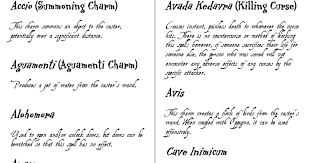 Accio (Summoning Charm)
This charm summons an object to the caster,
potentially over a significant distance.
Aguamenti (Aguamenti Charm)
Produces a jet of water from the caster's wand.
Alohomora
Used to open and/or unlock doors, but doors can be
bewitched so that this spell has no effect.
Avada Kedavra (Killing Curse)
Causes instant, painless death to whomever the curse
hits. There is no countercurse or method of blocking
this spell; however, if someone sacrifices their life for
someone else, the person who was saved will not
encounter any adverse effects of any curses by the
specific attacker.
Avis
This charm creates a flock of birds from the caster's
wand. When coupled with Oppugno, it can be used
offensively.
Cave Inimicum